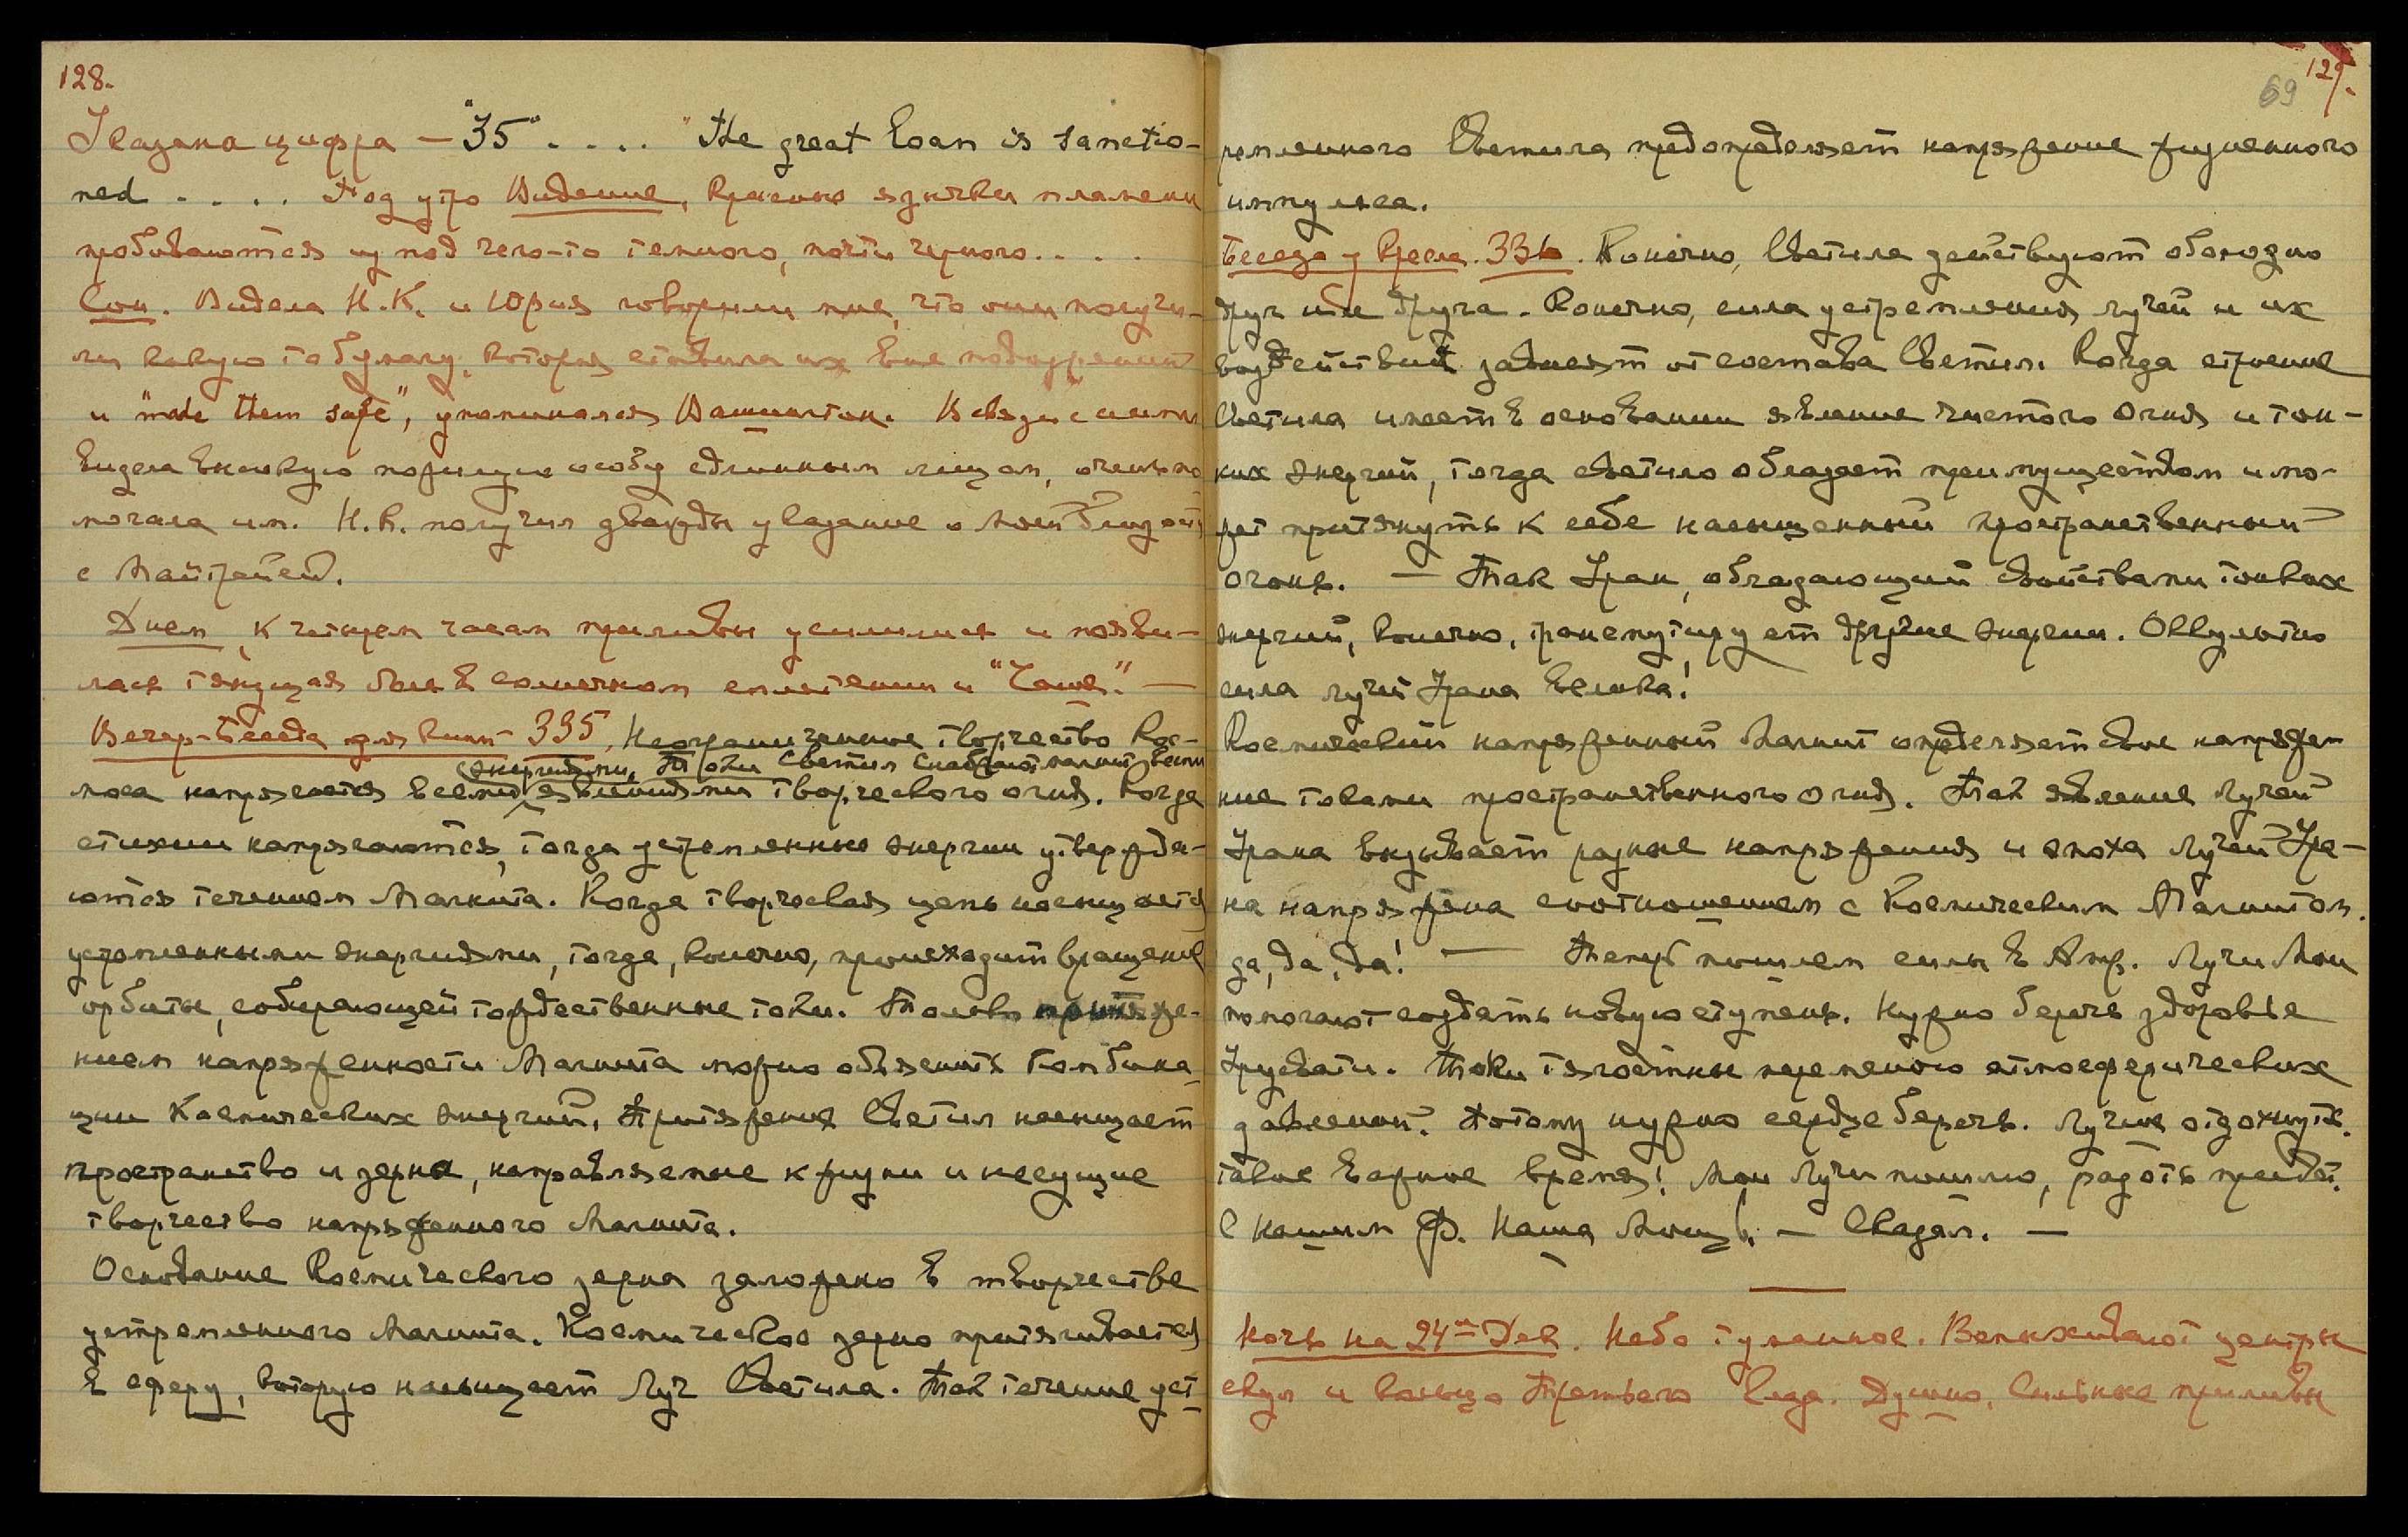 128.
Указана цифра — "35" . . . . "The great loan is sanctio-
ned . . . . Под утро Видение, красные язычки пламени
пробиваются из под чего-то темного, почти черного. . . .
Сон. Видела Н.К. и Юрия говорили мне, что они получи-
ли какую то бумагу, которая ставила их вне подозрений
и "made them safe", упоминался Вашингтон. В связи с этим
видела высокую пожилую особу с длинным лицом,
могала им. Н.К. получил дважды указание о моей близости
с Майтрейей.
Днем, к четырем часам приливы усилились и появи-
лась тянущая боль в солнечном сплетении и "Чаше". —
Вечер - Беседа для книги - 335. Неограниченное творчество Кос-
энергиями, Токи Светил снабжают магнит всеми
моса напрягается всеми явлениями творческого огня. Когда
стихии напрягаются, тогда устремленные энергии утвержда-
ются течением Магнита. Когда творческая цепь насыщается
устремленными энергиями, тогда, конечно, происходит вращение
орбиты, собирающей тождественные токи. Только притяже-
нием напряженности Магнита можно объяснить комбина-
ции Космических энергий. Притяжение Светил насыщает
пространство и зерна, направляемые к жизни и несущие
творчество напряженного Магнита.
Основание Космического зерна заложено в творчестве
устремленного Магнита. Космическое зерно притягивается
в сферу, которую насыщает Луч Светила. Так течение уст-
129.
69
ремленного Светила предопределяет напряжение жизненного
импульса.
Беседа у Кресла. 336. Конечно, Светила действуют обоюдно
друг на друга. Конечно, сила устремления лучей и их
воздействий зависят от состава Светил. Когда строение
Светила имеет в основании явление чистого Огня и тон-
ких энергий, тогда светило обладает преимуществом и мо-
жет притянуть к себе насыщенный пространственный
огонь. — Так Уран, обладающий свойствами тонких
энергий, конечно, трансмутирует другие энергии. Оккультно
сила лучей Урана велика!
Космический напряженный Магнит определяет свое напряже-
ние токами пространственного Огня. Так явление Лучей
Урана вызывает разные напряжения и эпоха Лучей Ура-
на напряжена соотношением с Космическим Магнитом.
да, да, да! — Теперь пошлем силы в Амр. Лучи Мои
помогают создать новую ступень. Нужно беречь здоровье
Урусвати. Токи тягостны переменою атмосферических
давлений. Потому нужно сердце беречь. Лучше отдохнуть.
такое важное время! Мои Лучи пошлю, радость придет.
С нашим Ф. Наша Мощь. — Сказал. —
Ночь на 24-е Дек. Небо туманное. Вспыхивают центры
скул и кольцо Третьего Глаза. Душно. Сильные приливы